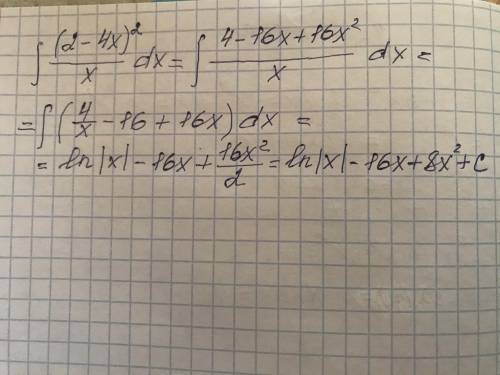 ∫ (2-4x)²/x dx = ∫ (4-16x+16x²)/x dx =
= ∫ (4/x - 16 + 16x) dx =
= ln|x| - 16x + 16x²/2 = ln|x| - 16x + 8x² + C